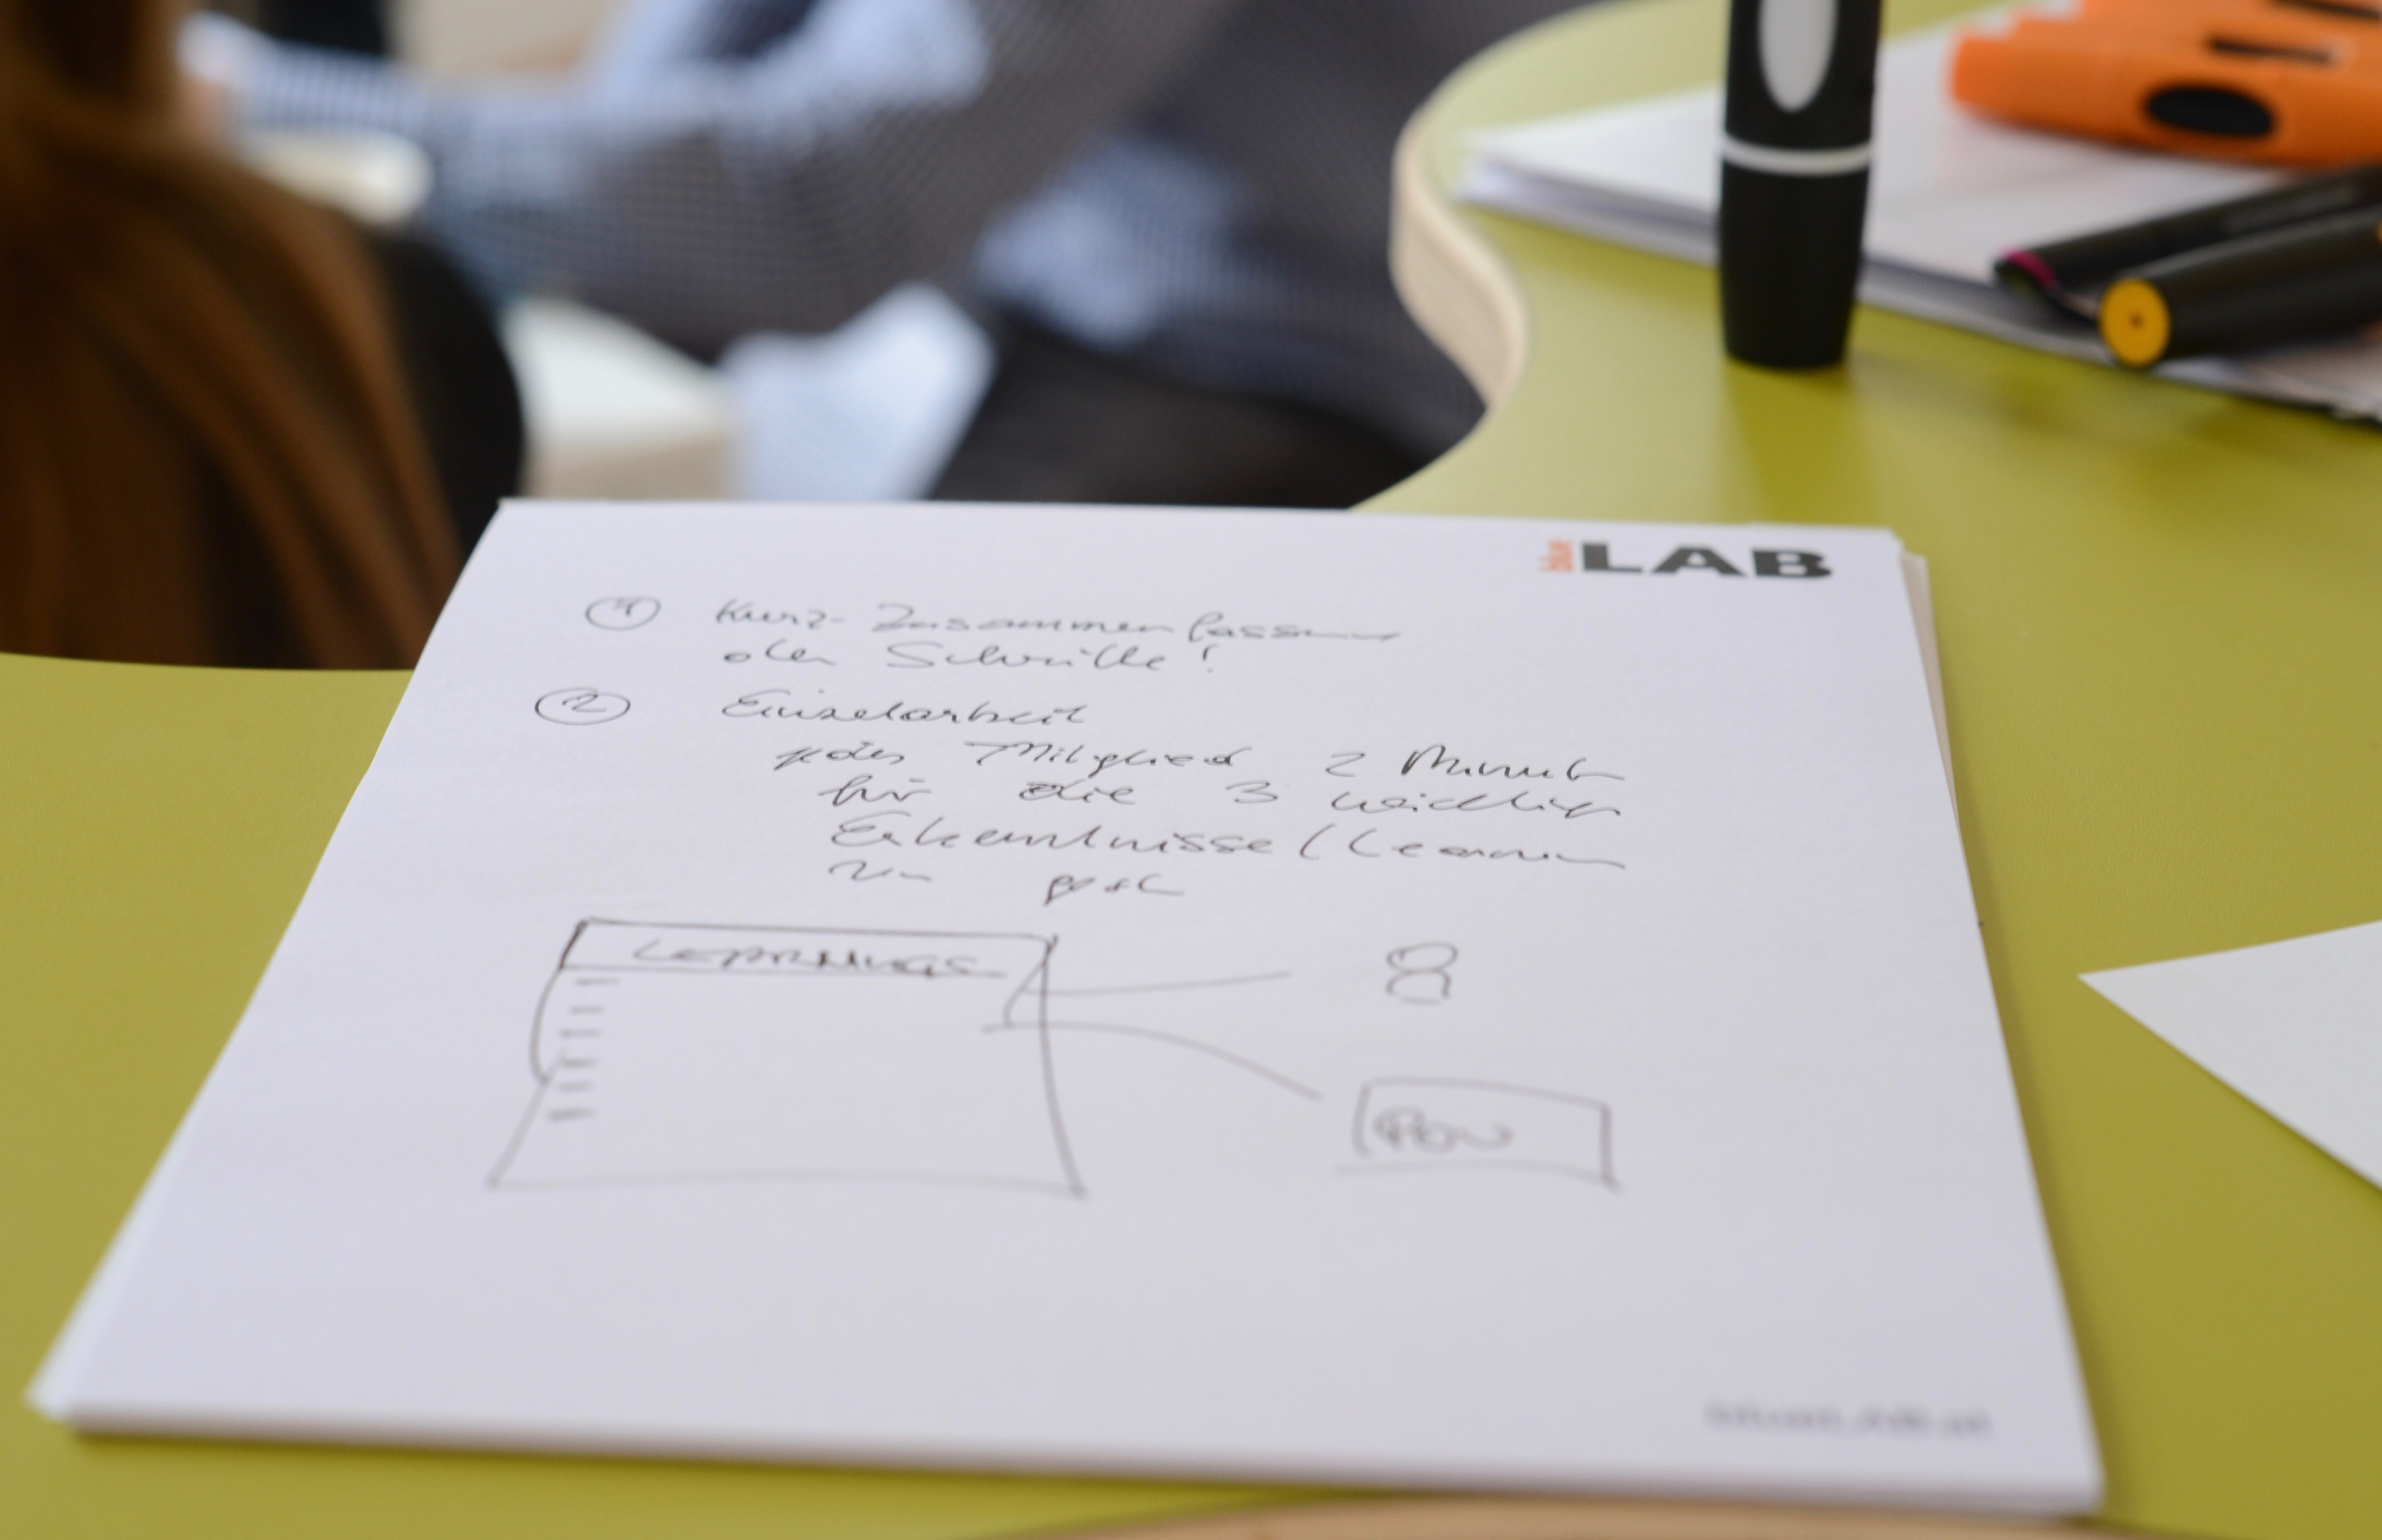 blue LAB
① Kurz-Zusammenfassung
der Schritte!
② Einzelarbeit
jedes Mitglied 2 Minuten
für die 3 wichtigsten
Erkenntnisse / Learnings
LEARNINGS